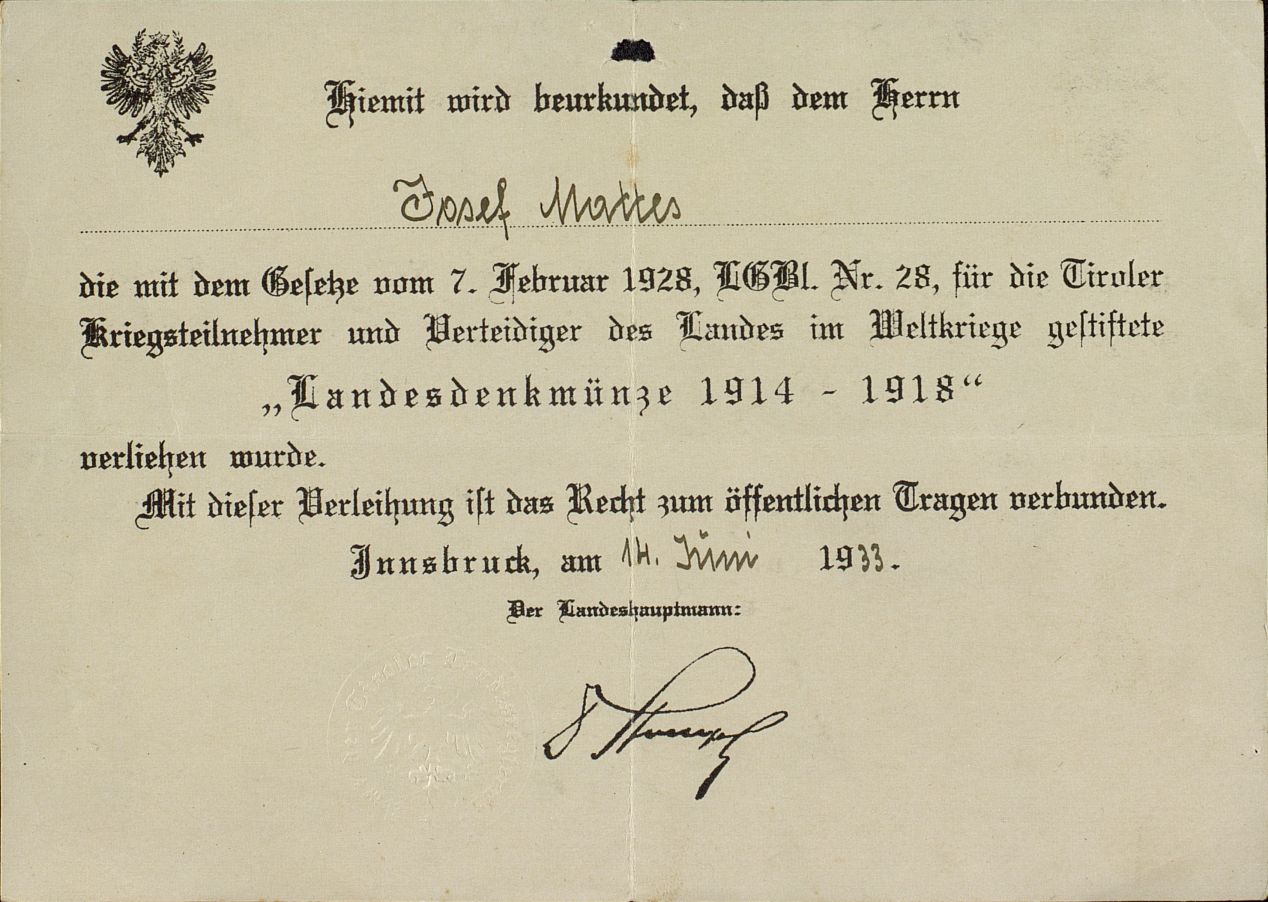 Hiemit wird beurkundet, daß dem Herrn
Josef Mattes
die mit dem Gesetze vom 7. Februar 1928, LGBl. Nr. 28, für die Tiroler
Kriegsteilnehmer und Verteidiger des Landes im Weltkriege gestiftete
„Landesdenkmünze 1914 - 1918“
verliehen wurde.
Mit dieser Verleihung ist das Recht zum öffentlichen Tragen verbunden.
Innsbruck, am 14. Juni 1933.
Der Landeshauptmann: